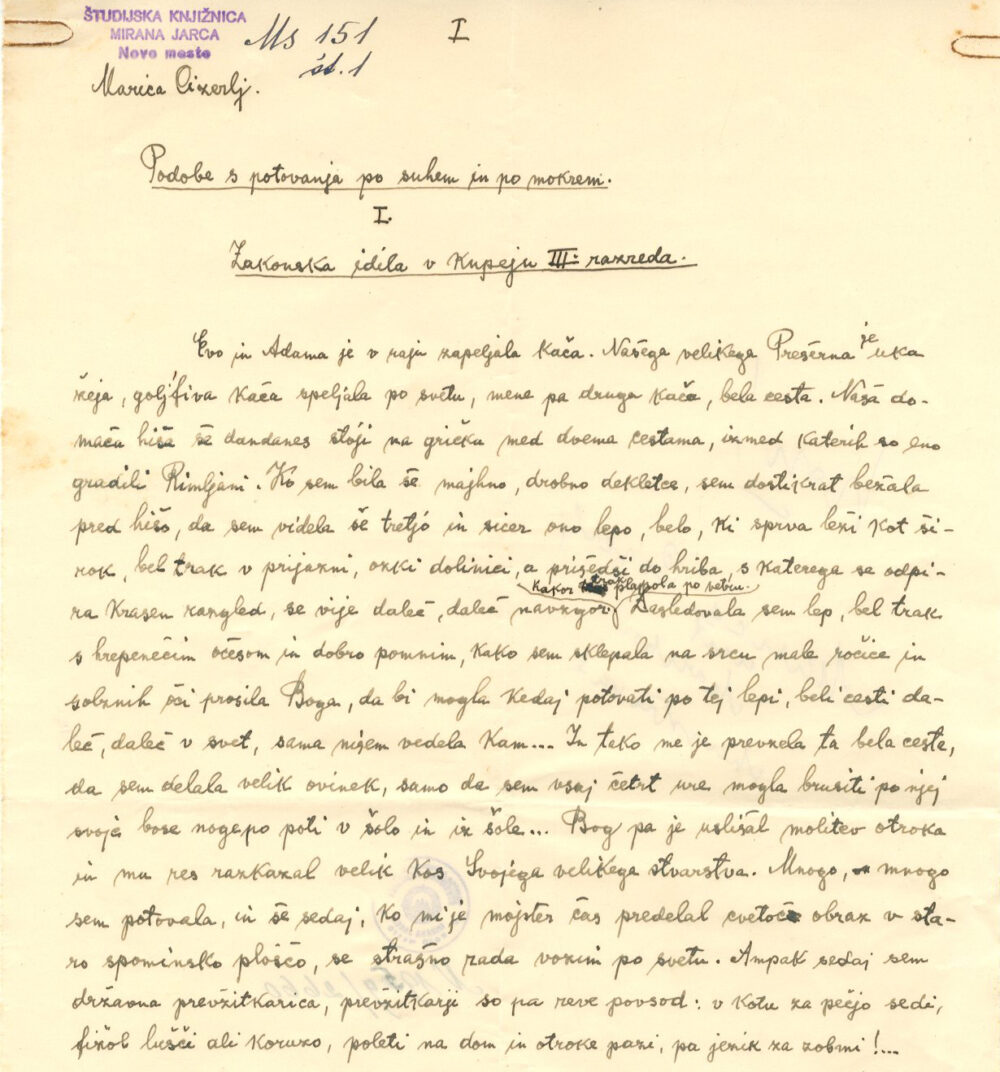 ŠTUDIJSKA KNJIŽNICA
MIRANA JARCA
Novo mesto
Ms 151
št. 1
I
Marica Cizerlj.
Podobe s potovanja po suhem in po mokrem.
I.
Zakonska idila v kupeju III: razreda.
Evo in Adama je v raju zapeljala kača. Našega velikega Prešerna je uka
žeja, goljfiva kača speljala po svetu, mene pa druga kača, bela cesta. Naša do-
mača hiša še dandanes stoji na gričku med dvema cestama, izmed katerih so eno
gradili Rimljani. Ko sem bila še majhno, drobno dekletce, sem dostikrat bežala
pred hišo, da sem videla še tretjo in sicer ono lepo, belo, ki sprva leži kot ši-
rok, bel trak v prijazni, ozki dolinici, a prišedši do hriba, s katerega se odpi-
kakor trak plapola po vetru.
ra krasen razgled, se vije daleč, daleč navzgor. Zasledovala sem lep, bel trak
s hrepenečim očesom in dobro pomnim, kako sem sklepala na srcu male ročice in
solznih oči prosila Boga, da bi mogla kedaj potovati po tej lepi, beli cesti da-
leč, daleč v svet, sama nisem vedela kam... In tako me je prevzela ta bela cesta,
da sem delala velik ovinek, samo da sem vsaj četrt ure mogla brusiti po njej
svoje bose noge po poti v šolo in iz šole... Bog pa je uslišal molitev otroka
in mu res razkazal velik kos Svojega velikega stvarstva. Mnogo, mnogo
sem potovala, in še sedaj, ko mi je mojster čas predelal cvetoč obraz v sta-
ro spominsko ploščo, se strašno rada vozim po svetu. Ampak sedaj sem
državna prevžitkarica, prevžitkarji so pa reve povsod: v kotu za pečjo sede,
fižol lušči ali koruzo, poleti na dom in otroke pazi, pa jezik za zobmi!...